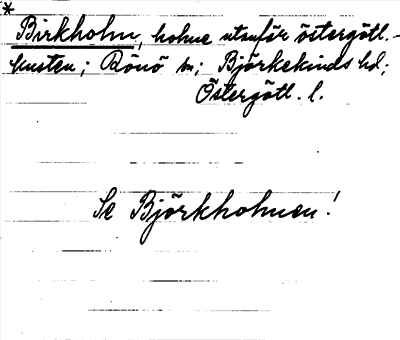 *
Birkholm, holme utanför östergötl.-
kusten; Rönö sn; Björkekinds hd;
Östergötl. l.
Se Björkholmen!